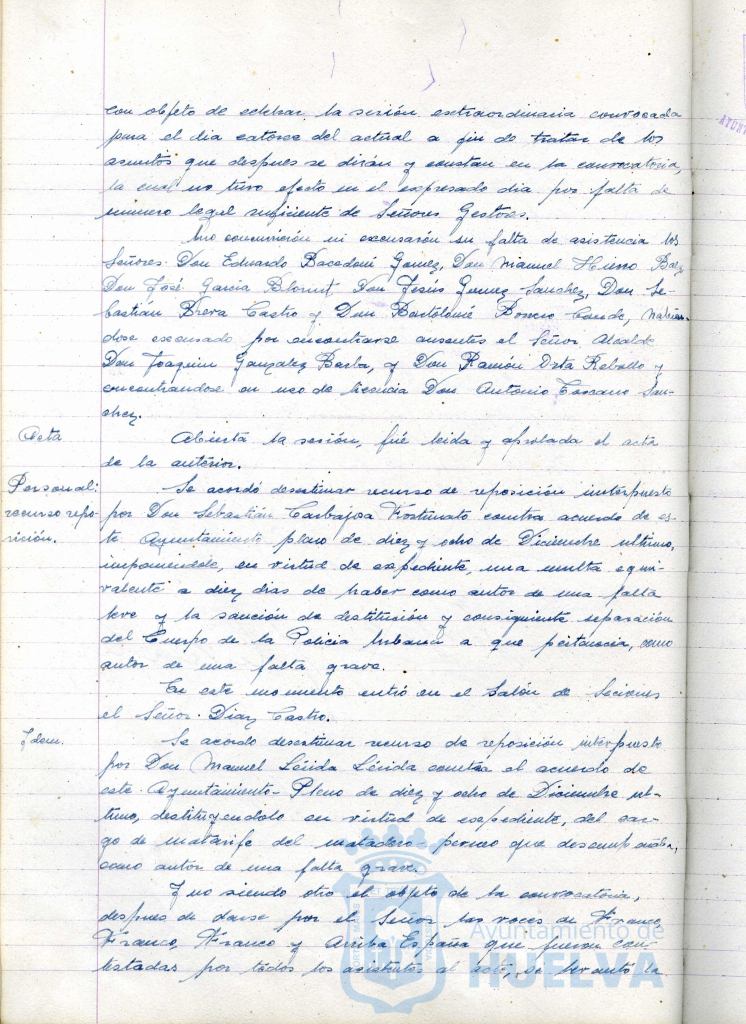 con objeto de celebrar la sesión extraordinaria convocada
para el dia catorce del actual a fin de tratar de los
asuntos que despues se dirán y constan en la convocatoria,
la cual no tuvo efecto en el expresado dia por falta de
numero legal suficiente de Señores Gestores.
No concurrieron ni excusaron su falta de asistencia los
Señores: Don Eduardo Bacedoni Gomez, Don Manuel Hierro Baez
Don José Garcia Don Jesús Gomez Sanchez, Don Se-
bastián Brera Castro y Don Bartolomé Romero Conde, habien-
dose excusado por encontrarse ausentes el Señor Alcalde
Don Joaquin Gonzalez Barba, y Don Ramón Orta Rebollo y
encontrandose en uso de licencia Don Antonio Toscano San-
chez.
Acta
Abierta la sesión, fué leida y aprobada el acta
de la anterior.
Personal:
recurso repo-
sición.
Se acordó desestimar recurso de reposición interpuesto
por Don Sebastián Carbajosa Fortunato contra acuerdo de es-
te Ayuntamiento pleno de diez y ocho de Diciembre ultimo,
imponiendole, en virtud de expediente, una multa equi-
valente a diez dias de haber como autor de una falta
leve y la sanción de destitusión y consiguiente separación
del Cuerpo de la Policia Urbana a que pertenecia, como
autor de una falta grave.
En este momento entró en el Salón de Seciones
el Señor Diaz Castro.
Idem.
Se acordo desestimar recurso de reposición interpuesto
por Don Manuel Lérida Lérida contra el acuerdo de
este Ayuntamiento-Pleno de diez y ocho de Diciembre ul-
timo, destituyendolo en virtud de expediente, del car-
go de matarife del matadero que desempeñaba,
como autor de una falta grave.
Y no siendo otro el objeto de la convocatoria,
despues de darse por el Señor las voces de Franco,
Franco, Franco y Arriba España que fueron con-
testadas por todos los asistentes al acto, se levantó la
Ayuntamiento de
HUELVA